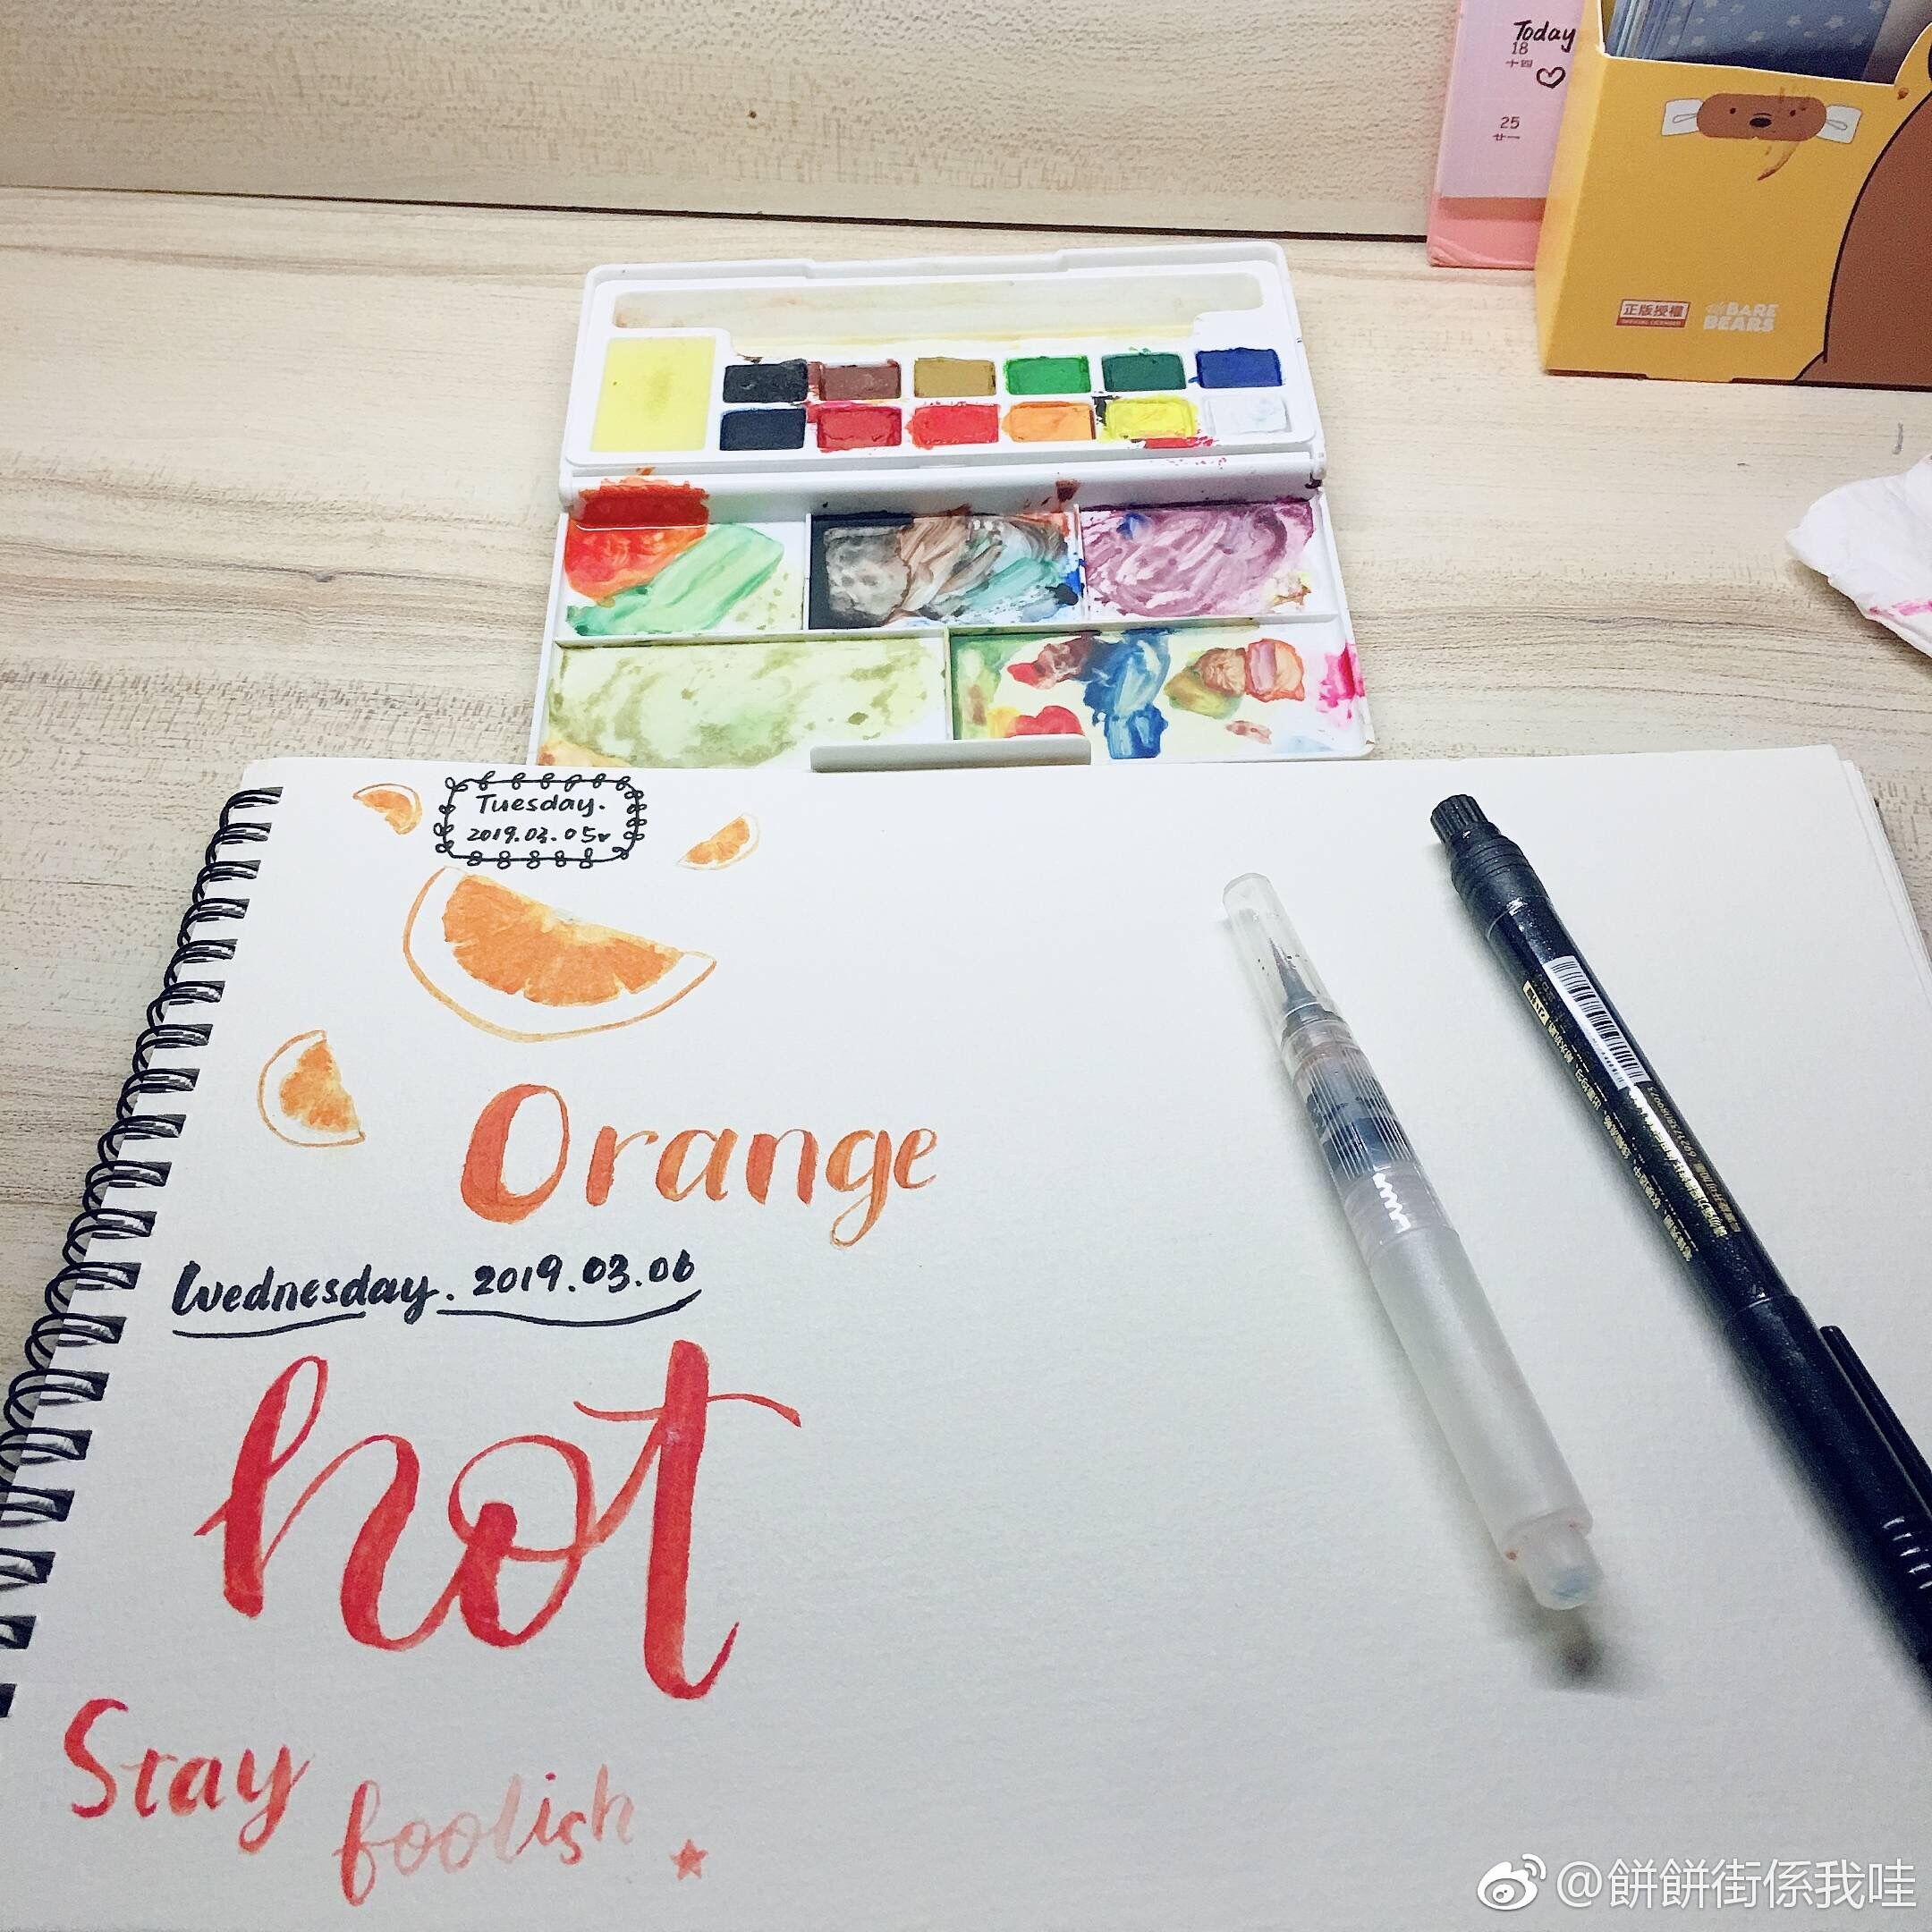 Today
18
十四
25
廿一
正版授權
OFFICIAL LICENSED
WE BARE BEARS
Tuesday.
2019.03.05
Orange
Wednesday. 2019.03.06
hot
Stay
foolish
@餅餅街係我哇